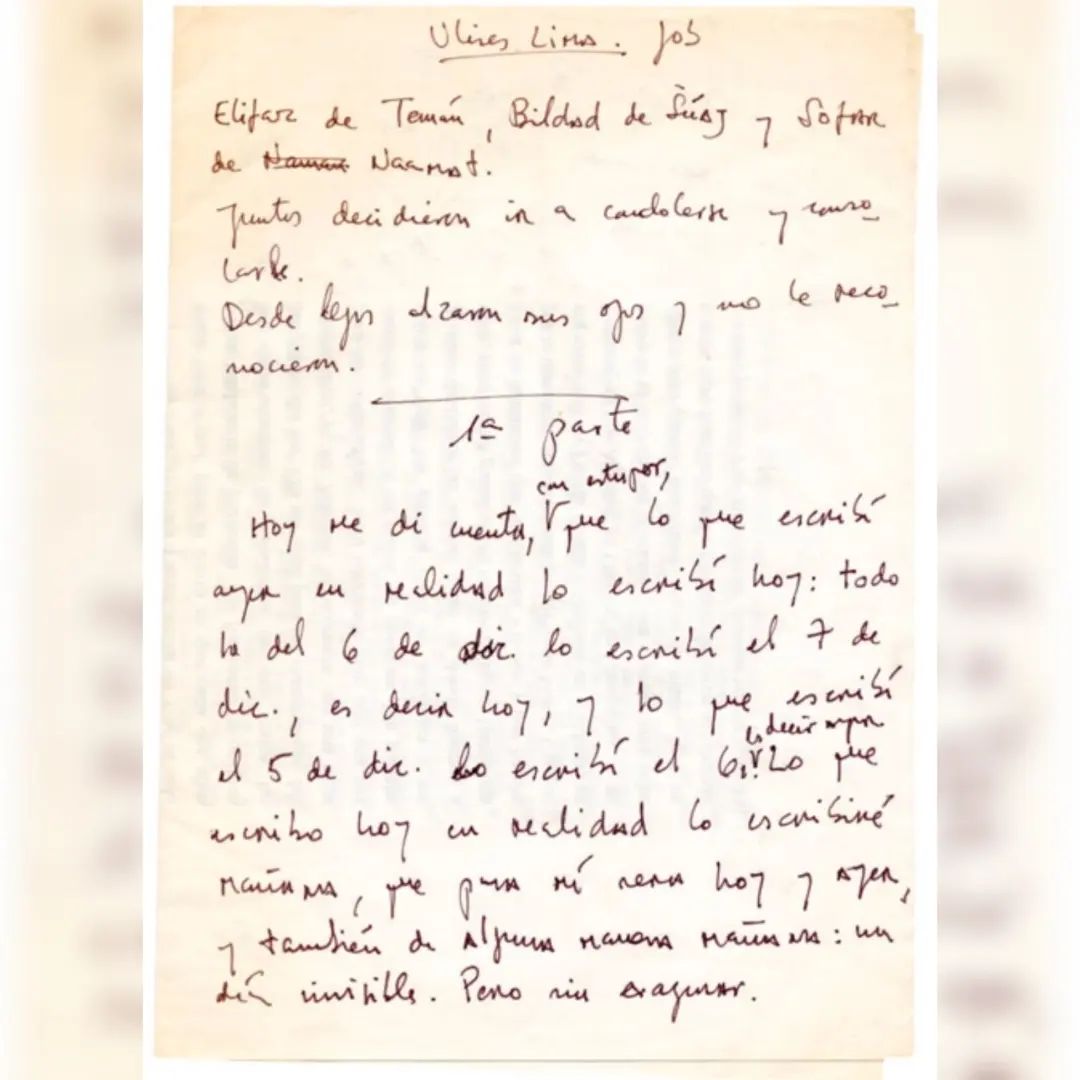 Ulises Lima. Job
Elifaz de Temán, Bildad de Súaj y Sofar
de Naaman Naamat.
Juntos decidieron ir a condolerse y conso_
larle.
Desde lejos alzaron sus ojos y no le reco_
nocieron.
1ª parte
con estupor,
Hoy me di cuenta, que lo que escribí
ayer en realidad lo escribí hoy: todo
lo del 6 de dic. lo escribí el 7 de
dic., es decir hoy, y lo que escribí
es decir ayer
el 5 de dic. lo escribí el 6, Lo que
escribo hoy en realidad lo escribiré
mañana, que para mí sera hoy y ayer,
y también de alguna manera mañana: un
día invisible. Pero sin exagerar.